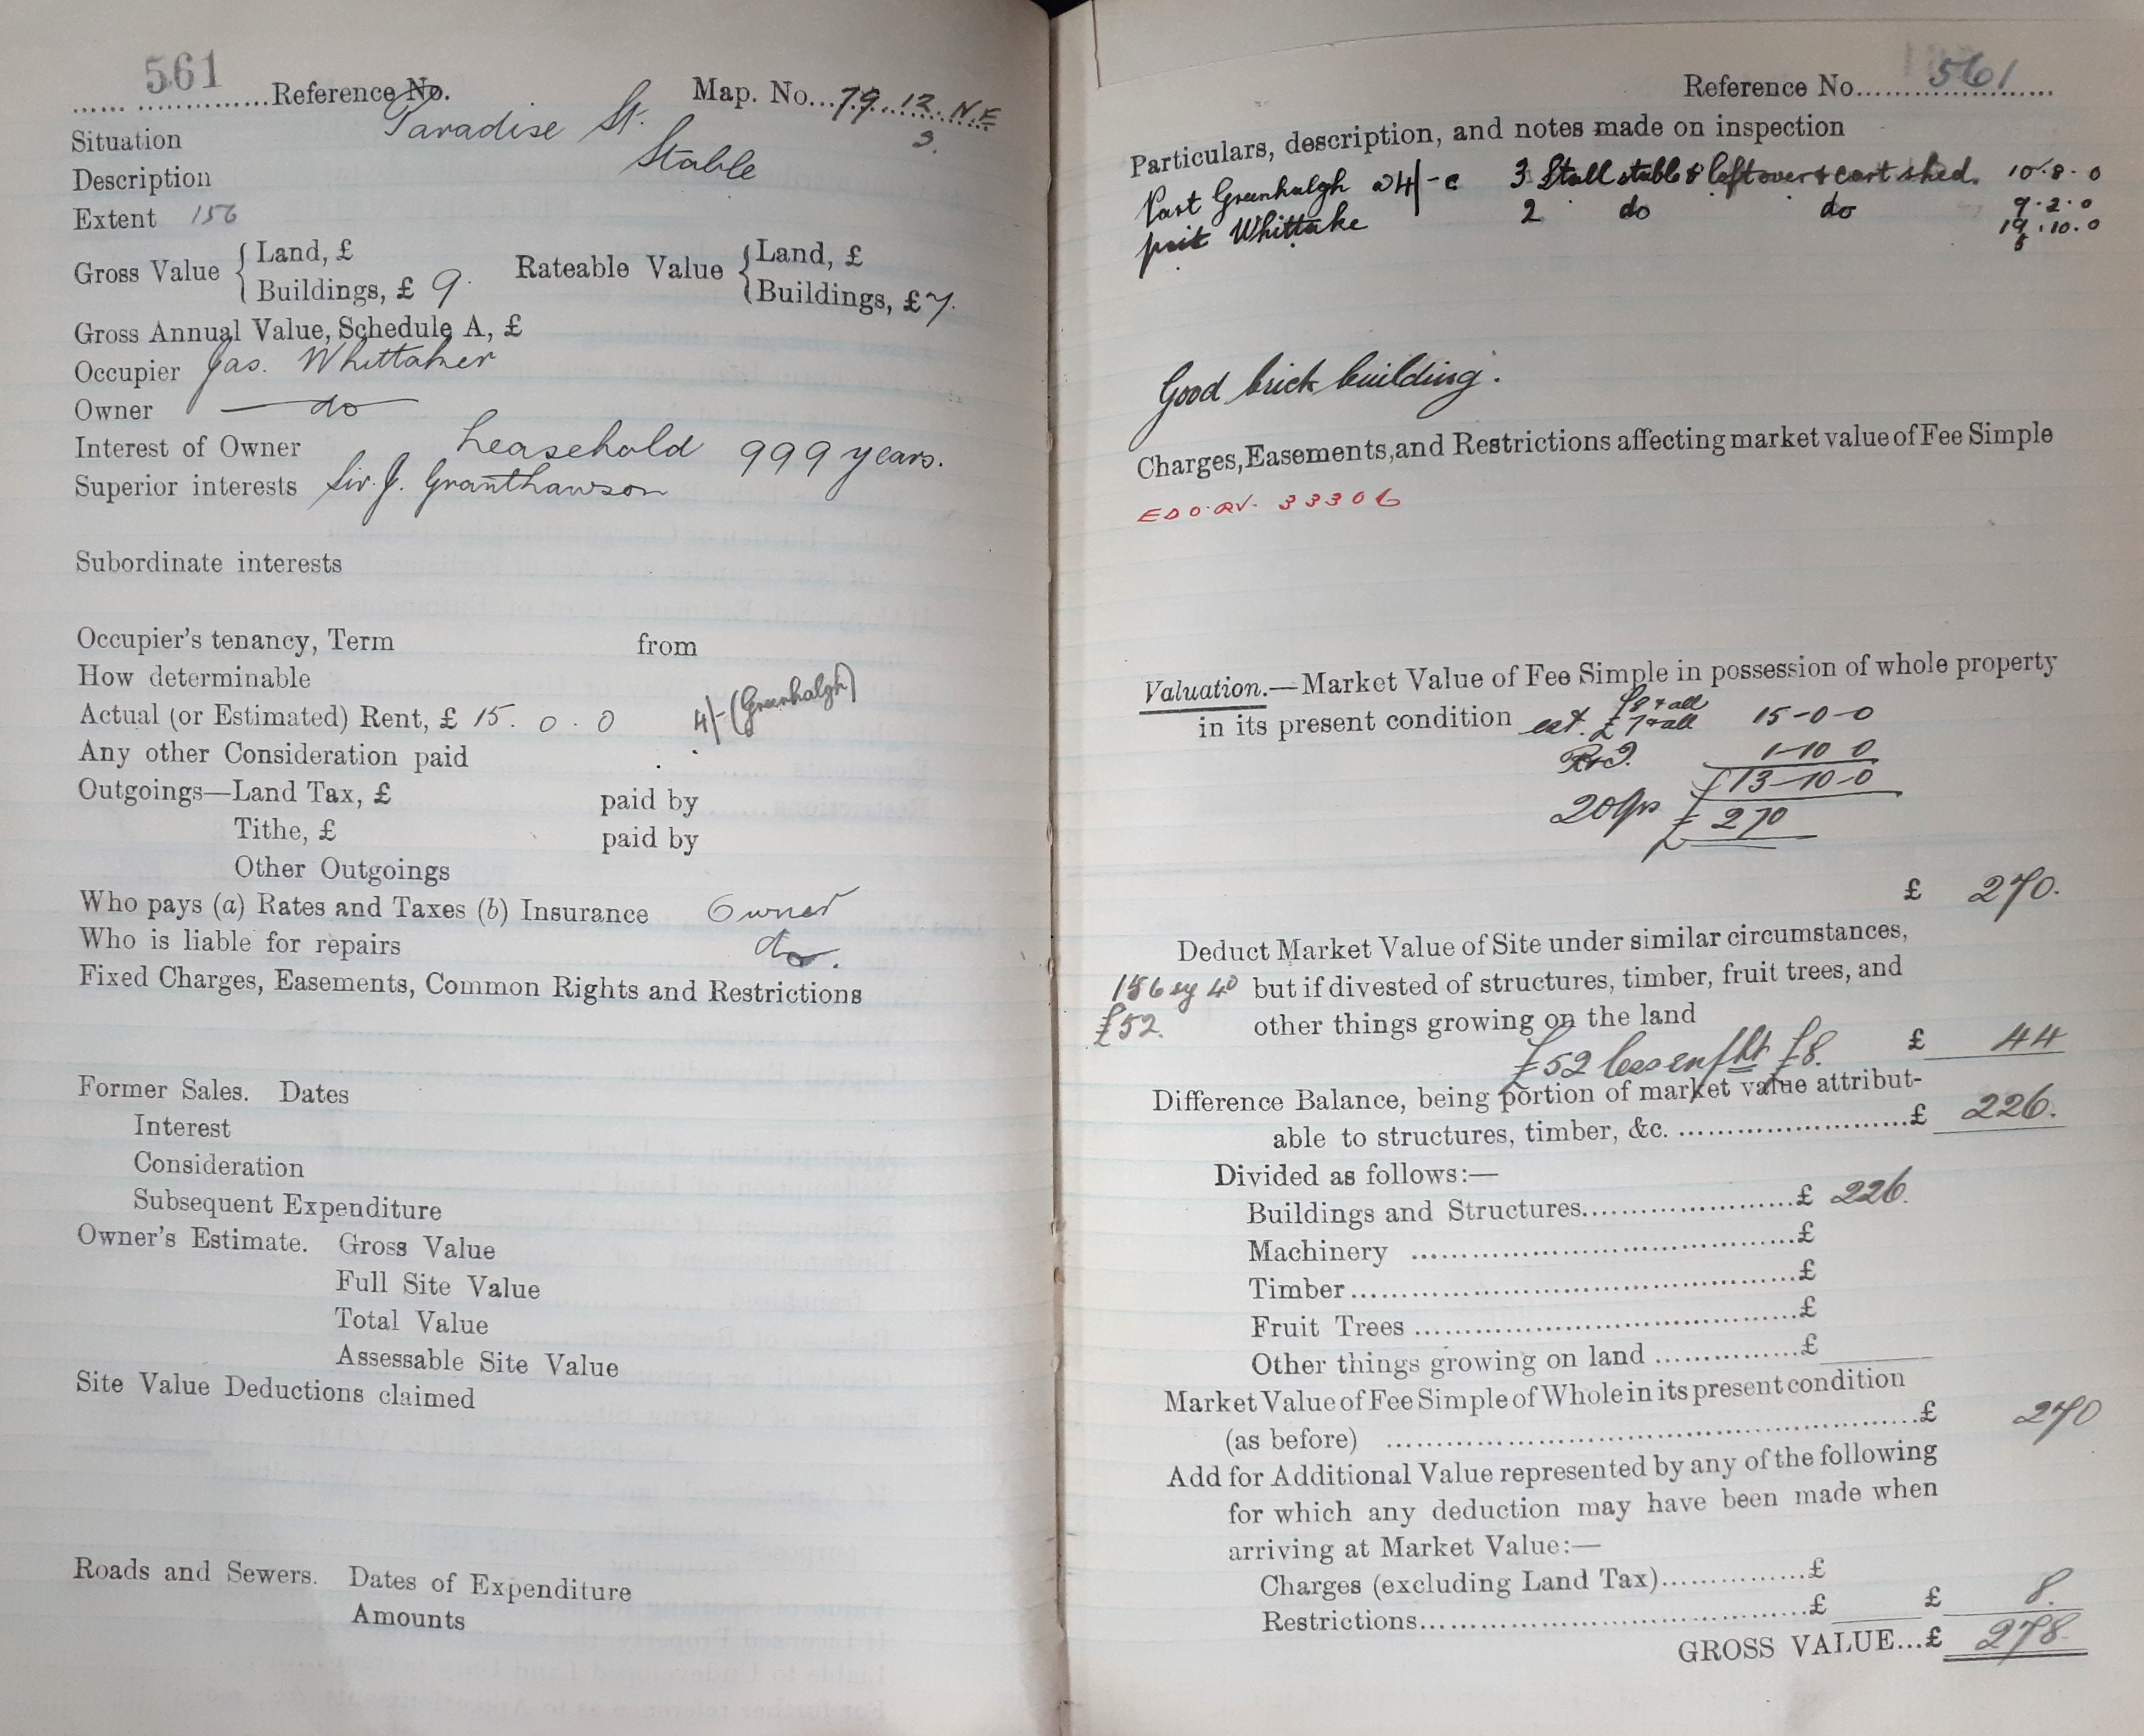 561
Reference No. Map. No... 79.12. N.E
3.
Situation Paradise St.
Description Stable
Extent 156
Gross Value { Land, £ Rateable Value { Land, £
Buildings, £ 9. Buildings, £ 7.
Gross Annual Value, Schedule A, £
Occupier Jas. Whittaker
Owner — do —
Interest of Owner Leasehold 999 years.
Superior interests Sir. J. Granthawson
Subordinate interests
Occupier's tenancy, Term from
How determinable
Actual (or Estimated) Rent, £ 15. 0. 0 4/- (Greenhalgh)
Any other Consideration paid
Outgoings—Land Tax, £ paid by
Tithe, £ paid by
Other Outgoings
Who pays (a) Rates and Taxes (b) Insurance Owner
Who is liable for repairs do.
Fixed Charges, Easements, Common Rights and Restrictions
Former Sales. Dates
Interest
Consideration
Subsequent Expenditure
Owner's Estimate. Gross Value
Full Site Value
Total Value
Assessable Site Value
Site Value Deductions claimed
Roads and Sewers. Dates of Expenditure
Amounts
Reference No. 561
Particulars, description, and notes made on inspection
Part Greenhalgh 4/- 3 Stall stable & loft over & cart shed. 10.8.0
part Whittake 2 do do 9.2.0
19.10.0
Good brick building.
Charges, Easements, and Restrictions affecting market value of Fee Simple
33306
Valuation.—Market Value of Fee Simple in possession of whole property
£8 & all
in its present condition est. £7 & all 15-0-0
1-10 0
£13-10-0
20 yrs £ 270
£ 270.
Deduct Market Value of Site under similar circumstances,
156 sy 4D but if divested of structures, timber, fruit trees, and
£52. other things growing on the land
£52 less £8. £ 44
Difference Balance, being portion of market value attribut-
able to structures, timber, &c. £ 226.
Divided as follows:—
Buildings and Structures £ 226.
Machinery £
Timber £
Fruit Trees £
Other things growing on land £
Market Value of Fee Simple of Whole in its present condition
(as before) £ 270
Add for Additional Value represented by any of the following
for which any deduction may have been made when
arriving at Market Value:—
Charges (excluding Land Tax) £
Restrictions £ £ 8.
GROSS VALUE...£ 278.